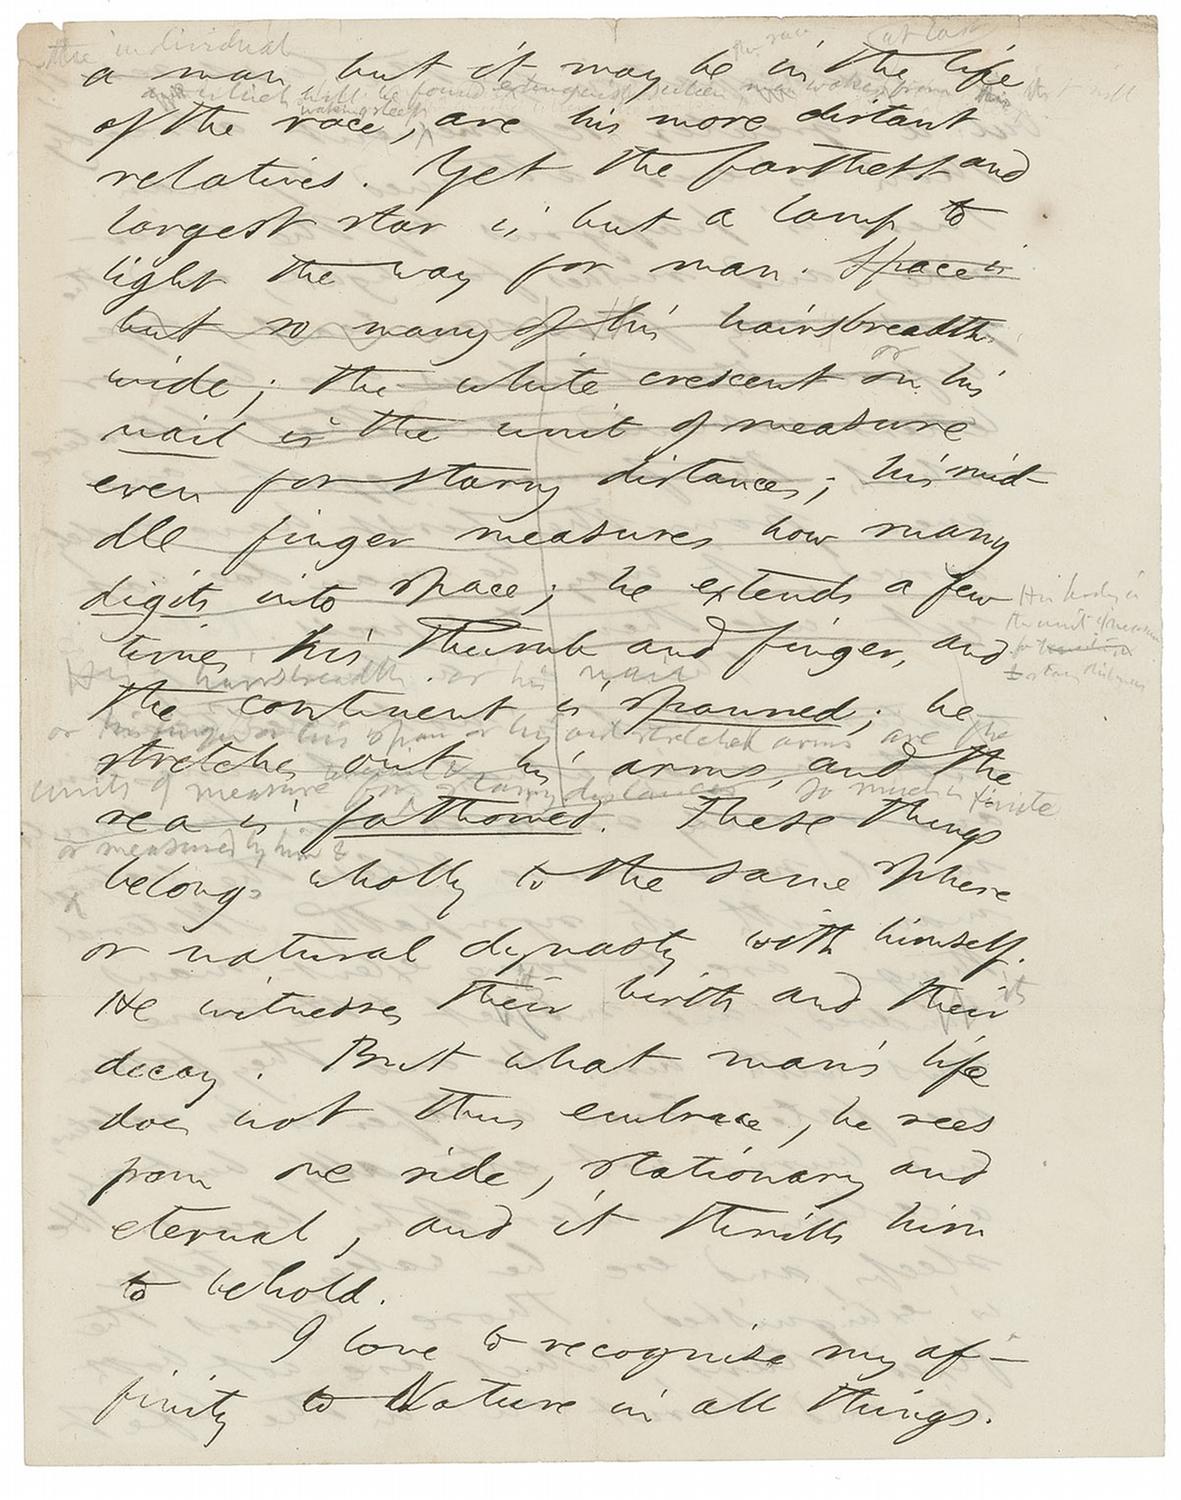 the individual the race at last
a man, but it may be in the life
which will be found when man wakes from this
waking sleep
of the race, are his more distant
relatives. Yet the farthest and
largest star is but a lamp to
light the way for man. Space is
but so many of his hairsbreadths
wide; the white crescent on his
or
nail is the unit of measure
even for starry distances; his mid-
dle finger measures how many
digits into space; he extends a few
His body is
the unit of measure
for
to starry distances
times his thumb and finger, and
His hairsbreadth or his nail
the continent is spanned; he
or his finger or his span or his outstretched arms are the
stretches out his arms, and the
units of measure for starry distances So much is finite
sea is fathomed. These things
or measured by him &
belongs wholly to the same sphere
or natural dynasty with himself.
He witnesses their birth and their
its
decay. But what man's life
does not thus embrace, he sees
from one side, stationary and
eternal, and it thrills him
to behold.
I love to recognise my af-
finity to Nature in all things.